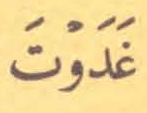 غَدَوْتَ